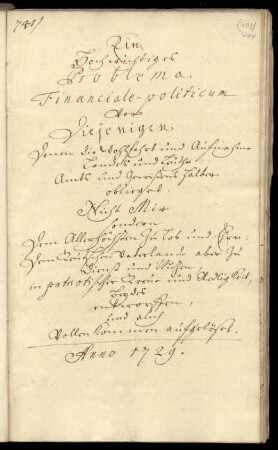 741)
Ein
Hochwichtiges
Problema
Financiale-politicum
Vor
Diejenigen
Denen die Wohlfahrt und Aufnahme
Landes und Leuthe
Amts und Gewissens halber
oblieget.
Nicht Mir
sondern
Dem Allerhöchsten zu Lob und Ehre,
Dem Teutschen Vaterlande aber zu
Dienst und Nutzen,
in patriotischer Treue und Redligkeit,
Beydes
entworffen,
und auch
Vollenkommen aufgelöset.
Anno 1729.